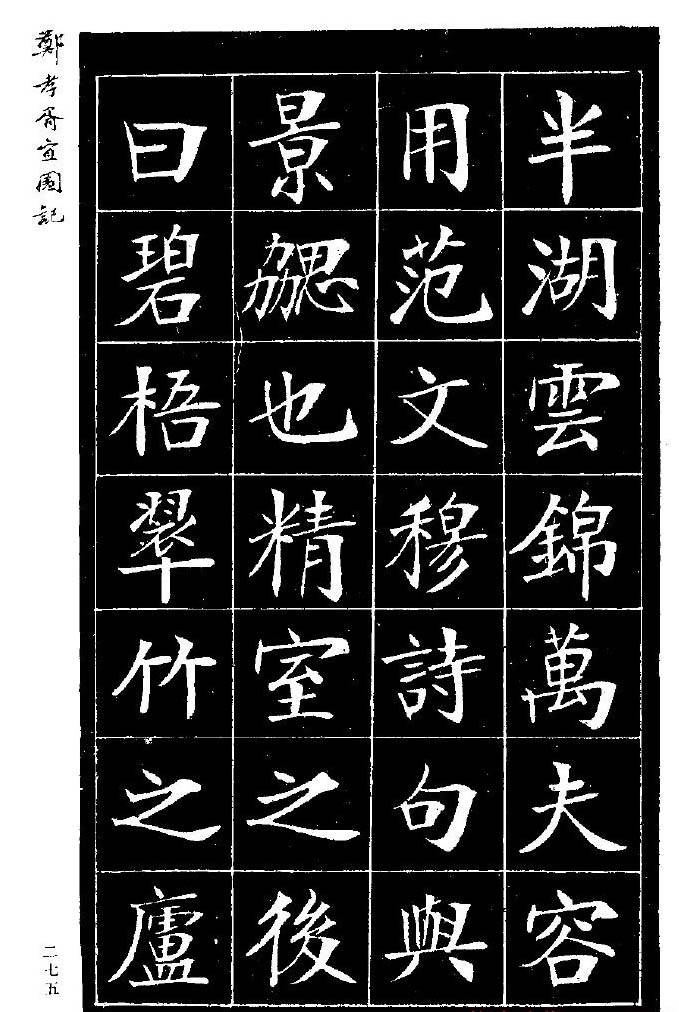 半湖雲錦萬夫容
用范文穆詩句與
景勰也精室之後
曰碧梧翠竹之廬
鄭孝胥宜園記
二七五